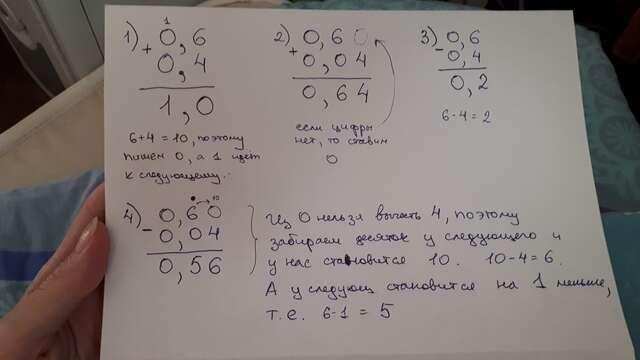 1)
1
+ 0,6
0,4
1,0
6+4 = 10, поэтому
пишем 0, а 1 идёт
к следующему.
2)
0,60
+ 0,04
0,64
если цифры
нет, то ставим
0
3)
0,6
- 0,4
0,2
6-4=2
4)
10
0,60
- 0,04
0,56
Из 0 нельзя вычесть 4, поэтому
забираем десяток у следующего и
у нас становится 10. 10-4=6.
А у следующ становится на 1 меньше,
т.е. 6-1 = 5